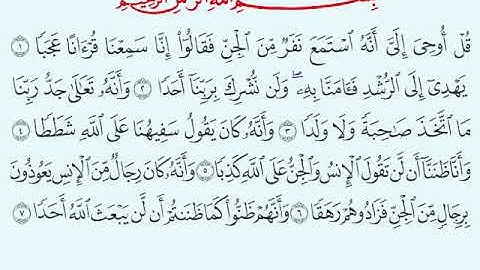 بِسْمِ ٱللَّهِ ٱلرَّحْمَٰنِ ٱلرَّحِيمِ
قُلْ أُوحِىَ إِلَىَّ أَنَّهُ ٱسْتَمَعَ نَفَرٌ مِّنَ ٱلْجِنِّ فَقَالُوٓا۟ إِنَّا سَمِعْنَا قُرْءَانًا عَجَبًا ١
يَهْدِىٓ إِلَى ٱلرُّشْدِ فَـَٔامَنَّا بِهِۦ ۖ وَلَن نُّشْرِكَ بِرَبِّنَآ أَحَدًا ٢ وَأَنَّهُۥ تَعَٰلَىٰ جَدُّ رَبِّنَا
مَا ٱتَّخَذَ صَٰحِبَةً وَلَا وَلَدًا ٣ وَأَنَّهُۥ كَانَ يَقُولُ سَفِيهُنَا عَلَى ٱللَّهِ شَطَطًا ٤
وَأَنَّا ظَنَنَّآ أَن لَّن تَقُولَ ٱلْإِنسُ وَٱلْجِنُّ عَلَى ٱللَّهِ كَذِبًا ٥ وَأَنَّهُۥ كَانَ رِجَالٌ مِّنَ ٱلْإِنسِ يَعُوذُونَ
بِرِجَالٍ مِّنَ ٱلْجِنِّ فَزَادُوهُمْ رَهَقًا ٦ وَأَنَّهُمْ ظَنُّوا۟ كَمَا ظَنَنتُمْ أَن لَّن يَبْعَثَ ٱللَّهُ أَحَدًا ٧